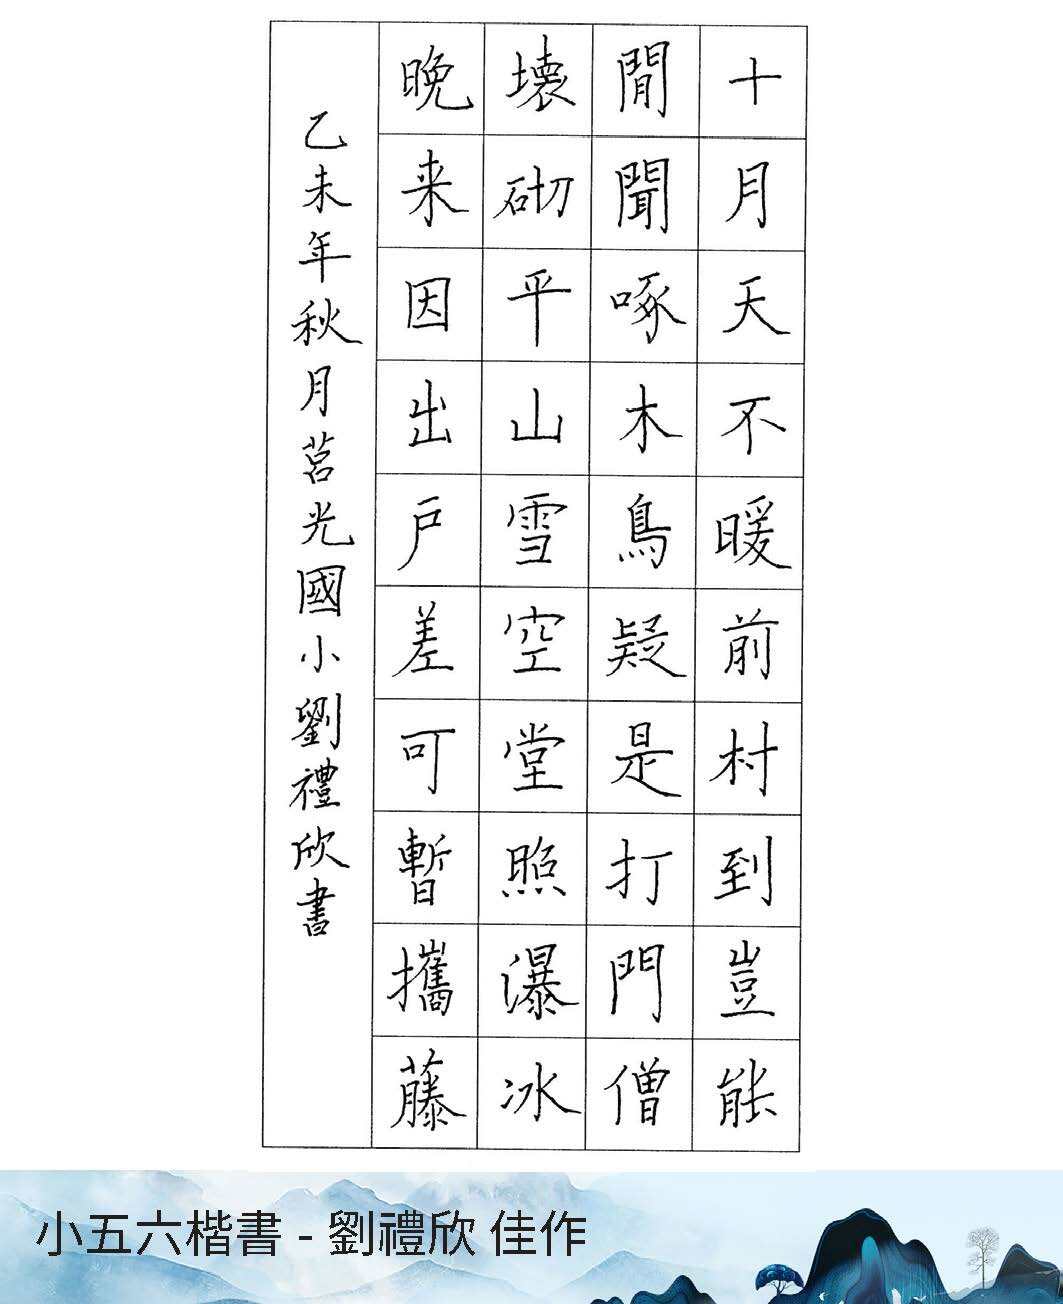 十月天不暖前村到豈能
閒聞啄木鳥疑是打門僧
壞砌平山雪空堂照瀑冰
晚来因出戶差可暫攜藤
乙未年秋月莒光國小劉禮欣書
小五六楷書 - 劉禮欣 佳作